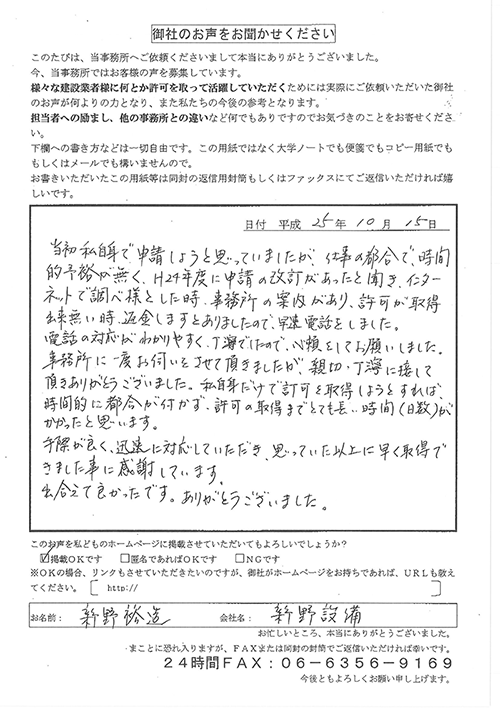 御社のお声をお聞かせください
このたびは、当事務所へご依頼くださいまして本当にありがとうございました。
今、当事務所ではお客様の声を募集しています。
様々な建設業者様に何とか許可を取って活躍していただくためには実際にご依頼いただいた御社
のお声が何よりの力となり、また私たちの今後の参考となります。
担当者への励まし、他の事務所との違いなど何でもありですのでお気づきのことをお寄せくださ
い。
下欄への書き方などは一切自由です。この用紙ではなく大学ノートでも便箋でもコピー用紙でも
もしくはメールでも構いませんので。
お書きいただいたこの用紙等は同封の返信用封筒もしくはファックスにてご返信いただければ嬉
しいです。
日付 平成 25年 10月 15日
当初私自身で申請しようと思っていましたが、仕事の都合で、時間
的予裕が無く、H24年度に申請の改訂があったと聞き、インター
ネットで調べ様とした時、事務所の案内があり、許可が取得
出来無い時、返金しますとありましたので、早速電話をしました。
電話の対応がわかりやすく、丁寧でしたので、信頼をしてお願いしました。
事務所に一度お伺いをさせて頂きましたが、親切・丁寧に接して
頂きありがとうございました。私自身だけで許可を取得しようとすれば、
時間的に都合が付かず、許可の取得までとても長い時間(日数)が
かかったと思います。
手際が良く、迅速に対応していただき、思っていた以上に早く取得で
きました事に感謝しています。
出会えて良かったです。ありがとうございました。
このお声を私どものホームページに掲載させていただいてもよろしいでしょうか?
☑掲載OKです □匿名であればOKです □NGです
※OKの場合、リンクもさせていただきたいのですが、御社がホームページをお持ちであれば、URLも教え
てください。[ http:// ]
お名前: 新野裕造 会社名: 新野設備
お忙しいところ、本当にありがとうございました。
まことに恐れ入りますが、FAXまたは同封の封筒でご返信いただければ幸いです。
24時間FAX:06-6356-9169
今後ともよろしくお願い申し上げます。